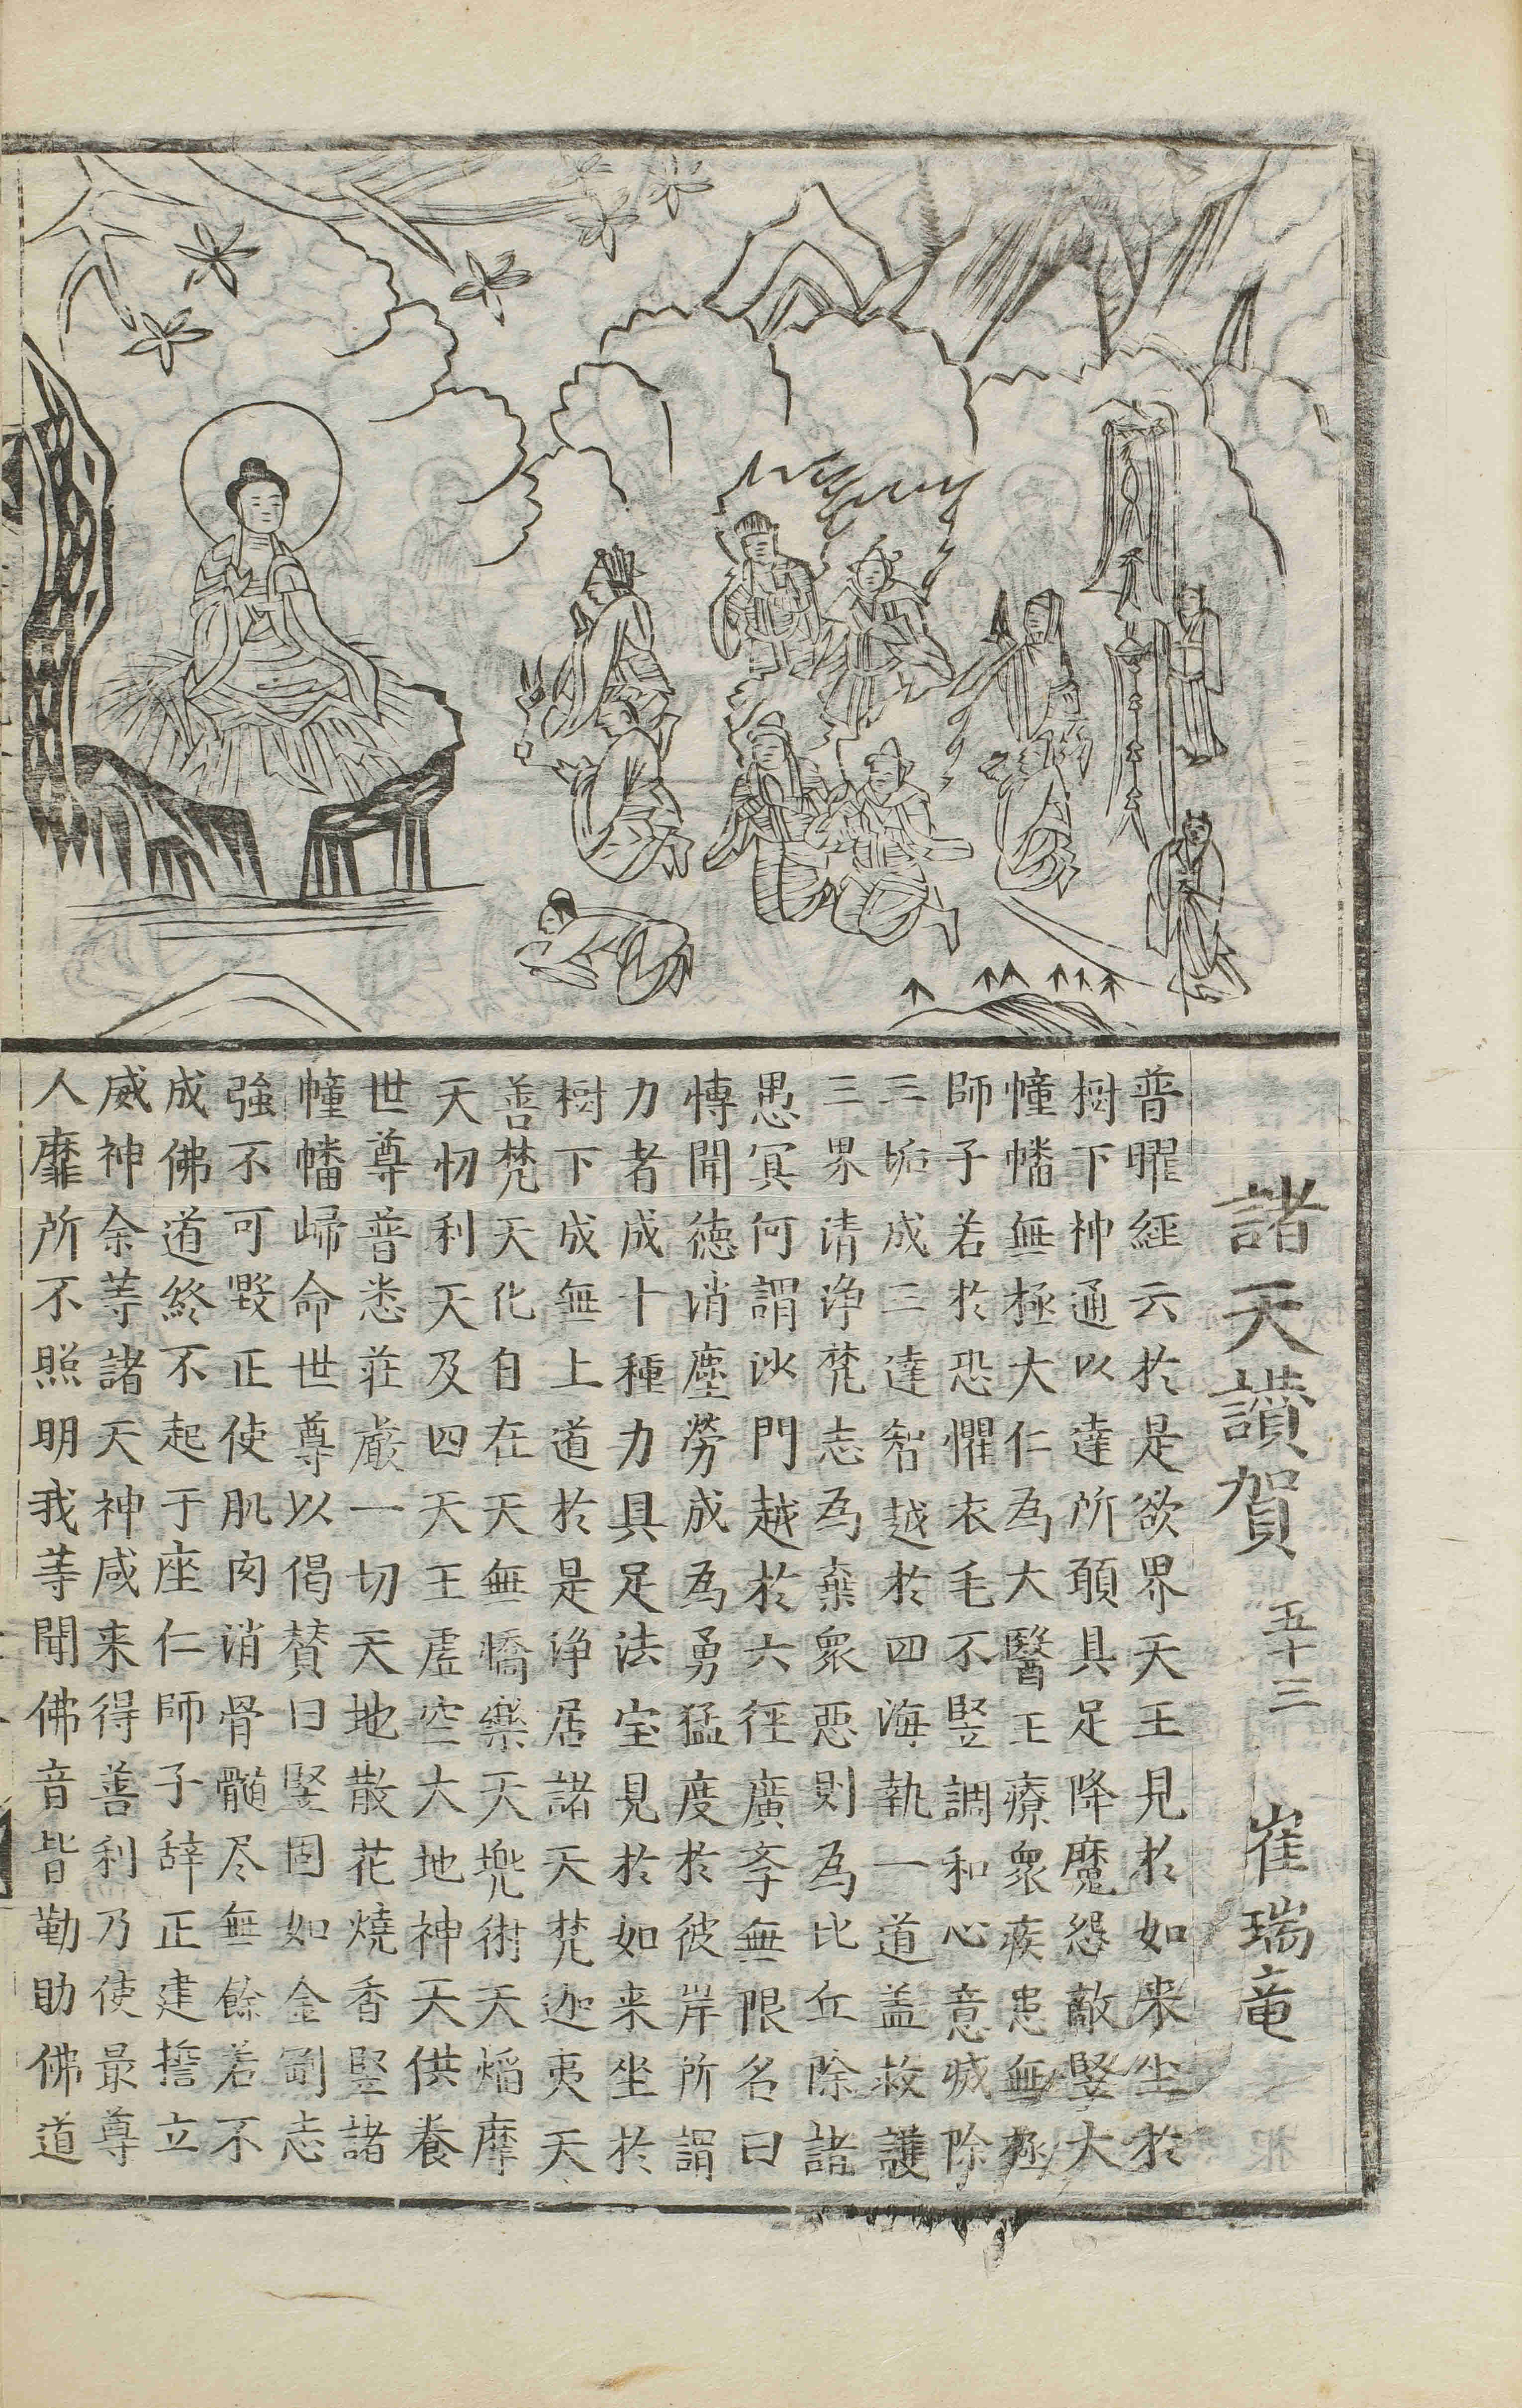 諸天讃賀 五十三 崔瑞竜
普曜経云於是欲界天王見於如来坐於
樹下神通以達所願具足降魔怨敵竪大
幢幡無極大仁為大醫王療衆疾患無極
師子若於恐懼衣毛不竪調和心意滅除
三垢成三達智越於四海執一道盖救護
三界清浄梵志為棄衆悪則為比丘除諸
愚冥何謂沙門越於六徑廣斈無限名曰
愽聞徳消塵勞成為勇猛度於彼岸所謂
力者成十種力具足法宝見於如来坐於
樹下成無上道於是浄居諸天梵迦夷天
善梵天化自在天無憍樂天兠術天焰摩
天忉利天及四天王虚空大地神天供養
世尊普悉荘嚴一切天地散花燒香竪諸
幢幡歸命世尊以偈賛曰堅固如金剛志
強不可毀正使肌肉消骨髓尽無餘若不
成佛道終不起于座仁師子辞正建誓立
威神余等諸天神咸来得善利乃使最尊
人靡所不照明我等聞佛音皆勤助佛道